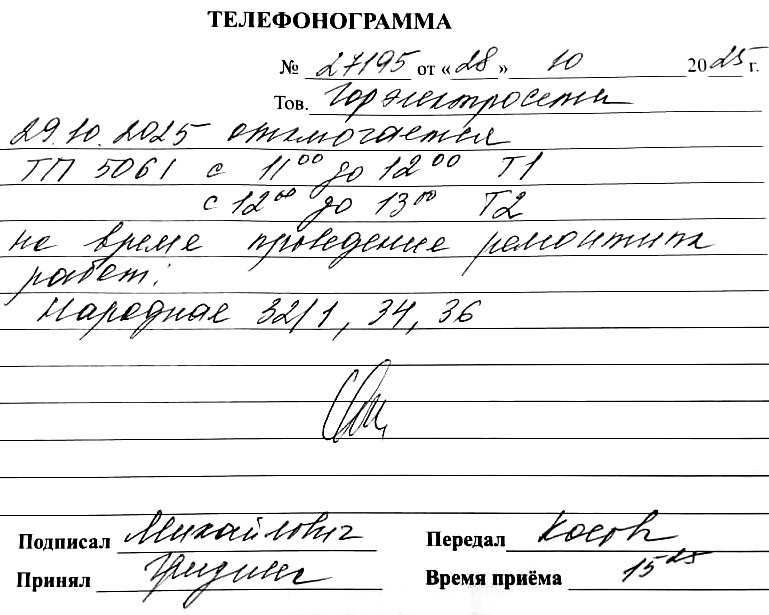 ТЕЛЕФОНОГРАММА
№ 27195 от «28» 10 2025 г.
Тов. Горэлектросети
29.10.2025 отключается
ТП 5061 с 11⁰⁰ до 12⁰⁰ Т1
с 12⁰⁰ до 13⁰⁰ Т2
на время проведение ремонтных
работ:
Народная 32/1, 34, 36
Подписал Михайлович Передал Косов
Принял Время приёма 15²⁵